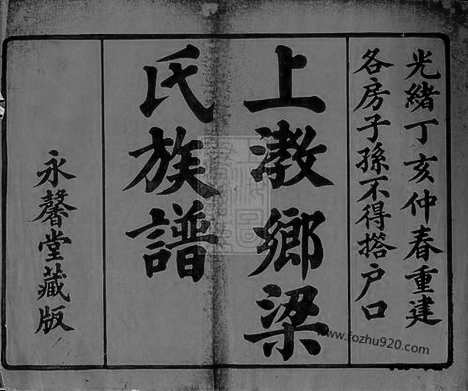 光緒丁亥仲春重建
各房子孫不得搭户口
上漖鄉梁
氏族譜
永馨堂藏版
www.fozhu920.com